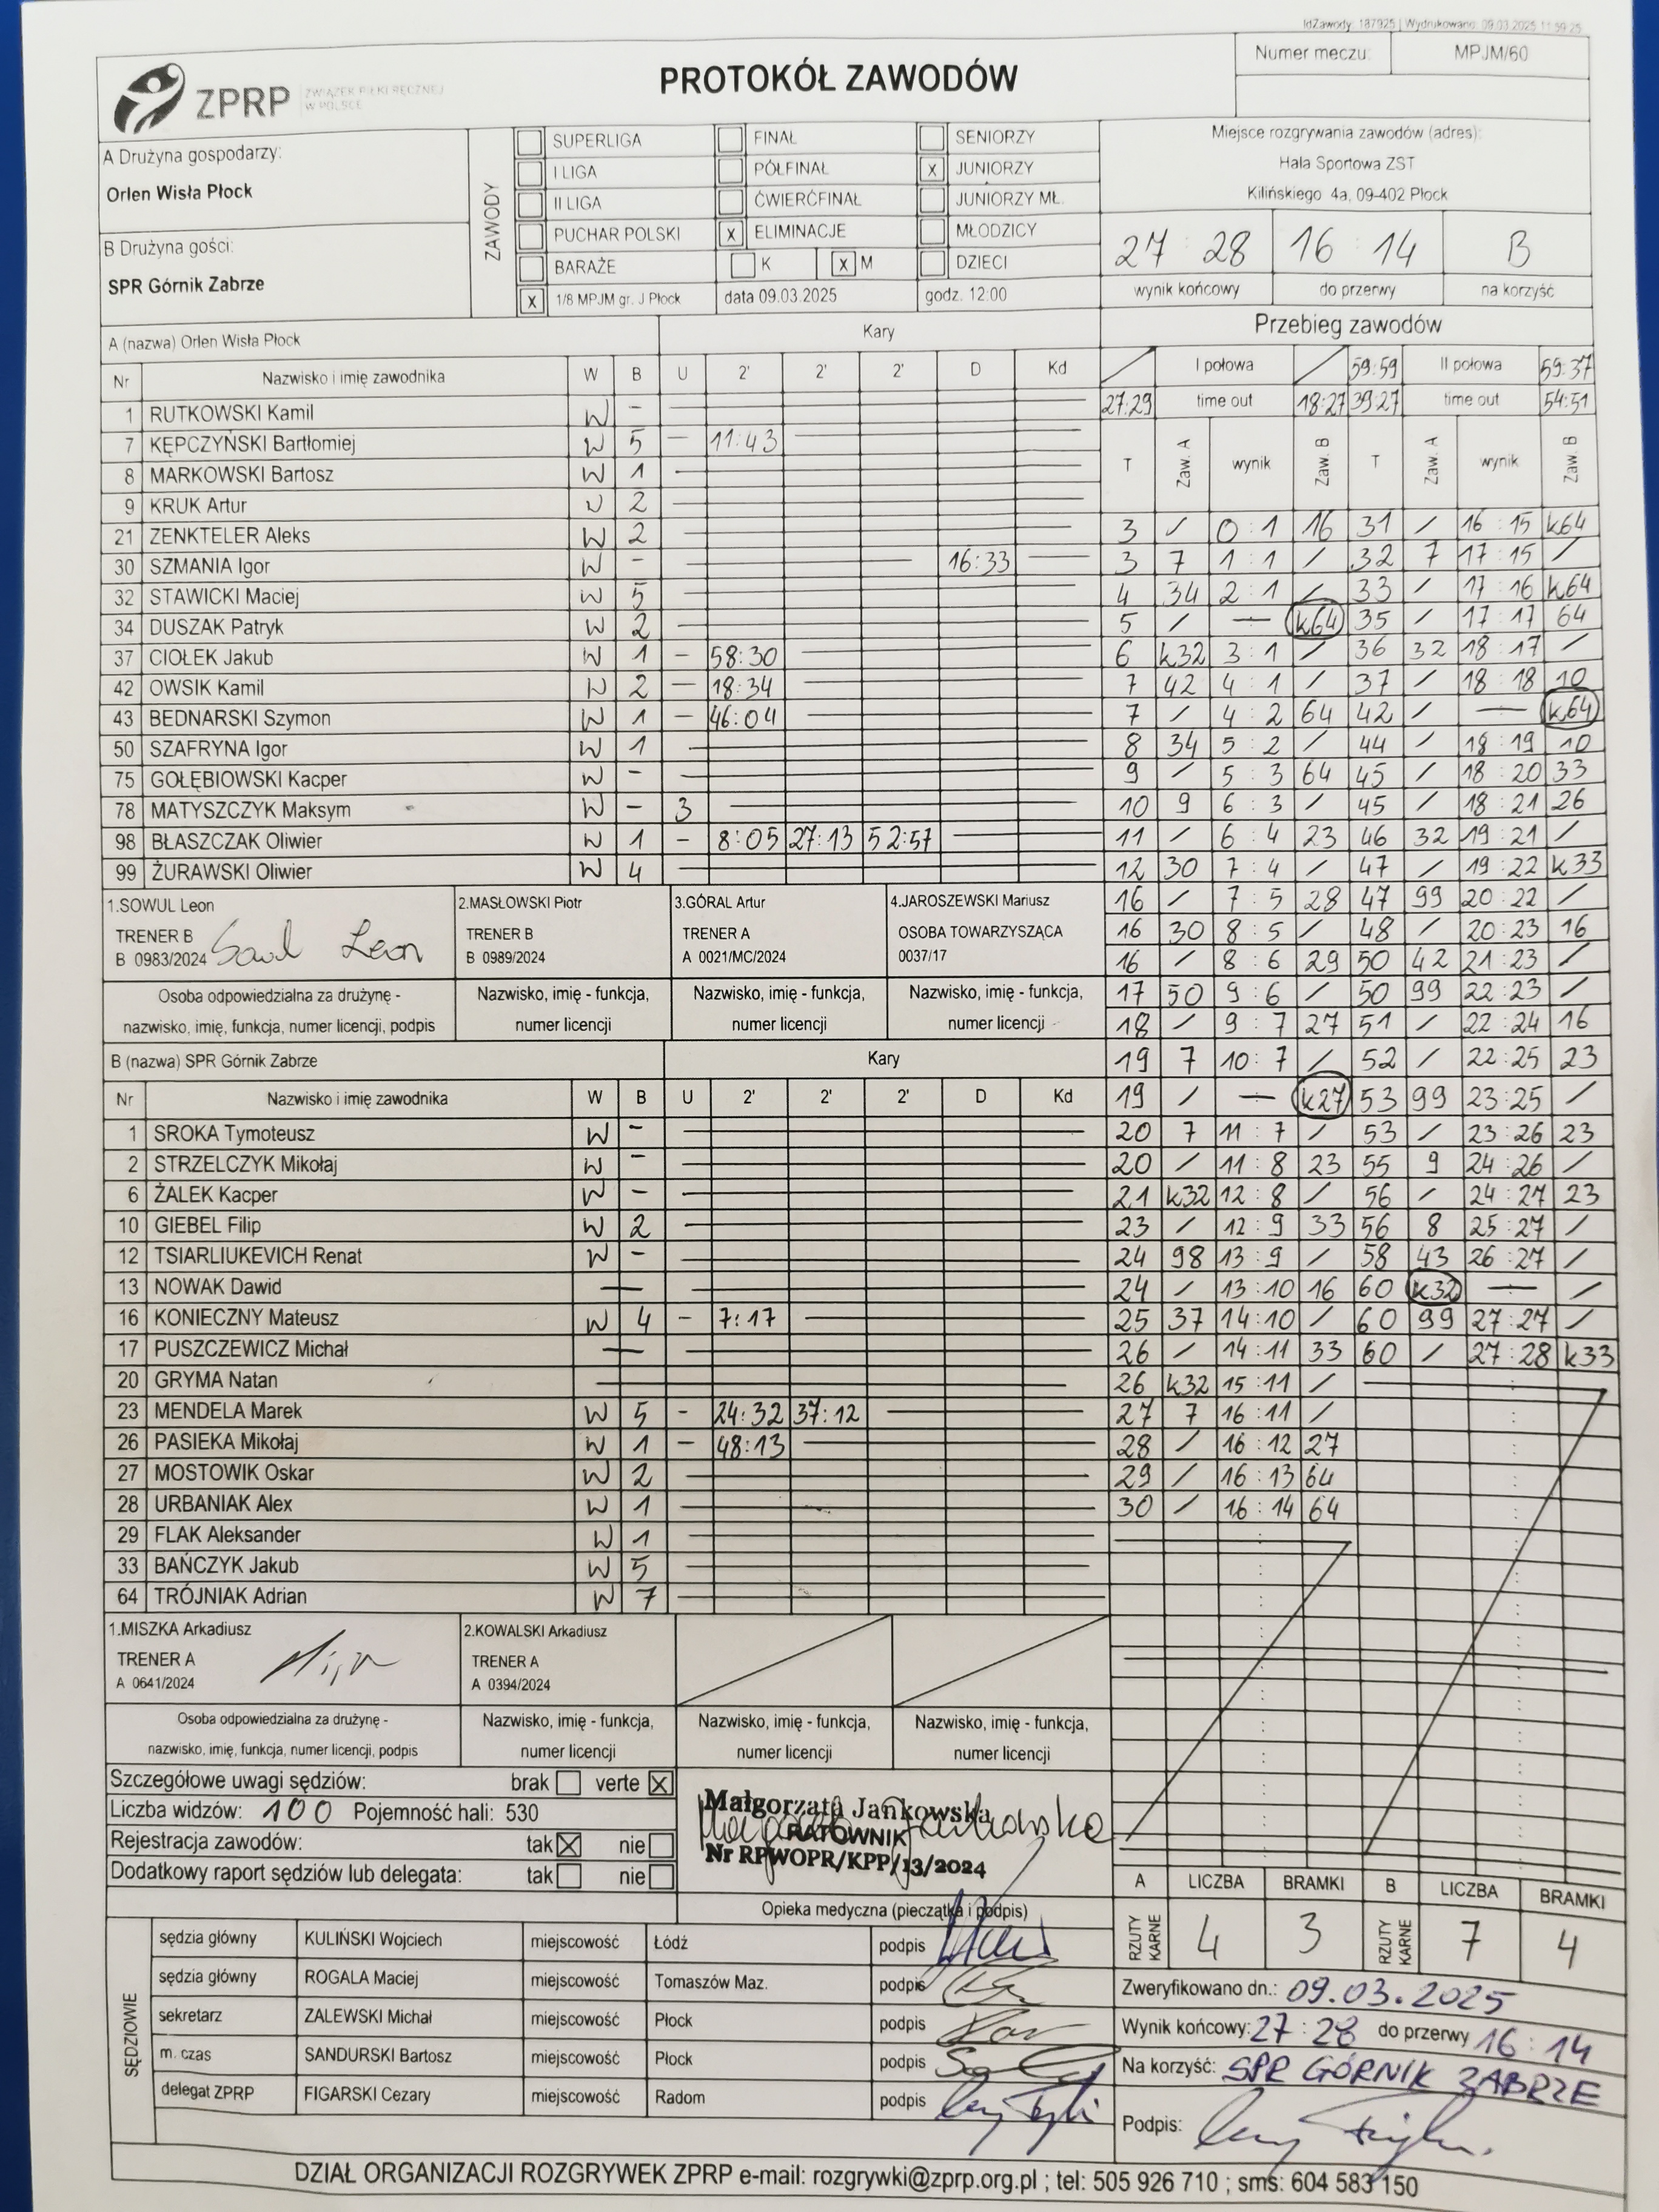 IdZawody: 187925 | Wydrukowano: 09.03.2025 11:59:25
Numer meczu: MPJM/60
ZPRP ZWIĄZEK PIŁKI RĘCZNEJ W POLSCE
PROTOKÓŁ ZAWODÓW
A Drużyna gospodarzy:
Orlen Wisła Płock
B Drużyna gości:
SPR Górnik Zabrze
ZAWODY
SUPERLIGA FINAŁ SENIORZY
I LIGA PÓŁFINAŁ x JUNIORZY
II LIGA ĆWIERĆFINAŁ JUNIORZY MŁ.
PUCHAR POLSKI x ELIMINACJE MŁODZICY
BARAŻE K x M DZIECI
x 1/8 MPJM gr. J Płock data 09.03.2025 godz. 12:00
Miejsce rozgrywania zawodów (adres):
Hala Sportowa ZST
Kilińskiego 4a, 09-402 Płock
27 : 28 16 : 14 B
wynik końcowy do przerwy na korzyść
A (nazwa) Orlen Wisła Płock Kary
Nr Nazwisko i imię zawodnika W B U 2' 2' 2' D Kd
1 RUTKOWSKI Kamil W -
7 KĘPCZYŃSKI Bartłomiej W 5 - 11:43
8 MARKOWSKI Bartosz W 1
9 KRUK Artur W 2
21 ZENKTELER Aleks W 2
30 SZMANIA Igor W - 16:33
32 STAWICKI Maciej W 5
34 DUSZAK Patryk W 2
37 CIOŁEK Jakub W 1 - 58:30
42 OWSIK Kamil W 2 - 18:34
43 BEDNARSKI Szymon W 1 - 46:04
50 SZAFRYNA Igor W 1
75 GOŁĘBIOWSKI Kacper W -
78 MATYSZCZYK Maksym W - 3
98 BŁASZCZAK Oliwier W 1 - 8:05 27:13 52:57
99 ŻURAWSKI Oliwier W 4
1.SOWUL Leon
TRENER B
B 0983/2024 Sowul Leon
2.MASŁOWSKI Piotr
TRENER B
B 0989/2024
3.GÓRAL Artur
TRENER A
A 0021/MC/2024
4.JAROSZEWSKI Mariusz
OSOBA TOWARZYSZĄCA
0037/17
Osoba odpowiedzialna za drużynę -
nazwisko, imię, funkcja, numer licencji, podpis
Nazwisko, imię - funkcja,
numer licencji
Nazwisko, imię - funkcja,
numer licencji
Nazwisko, imię - funkcja,
numer licencji
B (nazwa) SPR Górnik Zabrze Kary
Nr Nazwisko i imię zawodnika W B U 2' 2' 2' D Kd
1 SROKA Tymoteusz W -
2 STRZELCZYK Mikołaj W -
6 ŻALEK Kacper W -
10 GIEBEL Filip W 2
12 TSIARLIUKEVICH Renat W -
13 NOWAK Dawid —
16 KONIECZNY Mateusz W 4 - 7:17
17 PUSZCZEWICZ Michał —
20 GRYMA Natan
23 MENDELA Marek W 5 - 24:32 37:12
26 PASIEKA Mikołaj W 1 - 48:13
27 MOSTOWIK Oskar W 2
28 URBANIAK Alex W 1
29 FLAK Aleksander W 1
33 BAŃCZYK Jakub W 5
64 TRÓJNIAK Adrian W 7
1.MISZKA Arkadiusz
TRENER A
A 0641/2024
2.KOWALSKI Arkadiusz
TRENER A
A 0394/2024
Osoba odpowiedzialna za drużynę -
nazwisko, imię, funkcja, numer licencji, podpis
Nazwisko, imię - funkcja,
numer licencji
Nazwisko, imię - funkcja,
numer licencji
Nazwisko, imię - funkcja,
numer licencji
Przebieg zawodów
/ I połowa / 59:59 II połowa 59:37
27:29 time out 18:27 39:27 time out 54:51
T Zaw. A wynik Zaw. B T Zaw. A wynik Zaw. B
3 / 0 : 1 16 31 / 16 : 15 k64
3 7 1 : 1 / 32 7 17 : 15 /
4 34 2 : 1 / 33 / 17 : 16 k64
5 / — k64 35 / 17 : 17 64
6 k32 3 : 1 / 36 32 18 : 17 /
7 42 4 : 1 / 37 / 18 : 18 10
7 / 4 : 2 64 42 / — k64
8 34 5 : 2 / 44 / 18 : 19 10
9 / 5 : 3 64 45 / 18 : 20 33
10 9 6 : 3 / 45 / 18 : 21 26
11 / 6 : 4 23 46 32 19 : 21 /
12 30 7 : 4 / 47 / 19 : 22 k33
16 / 7 : 5 28 47 99 20 : 22 /
16 30 8 : 5 / 48 / 20 : 23 16
16 / 8 : 6 29 50 42 21 : 23 /
17 50 9 : 6 / 50 99 22 : 23 /
18 / 9 : 7 27 51 / 22 : 24 16
19 7 10 : 7 / 52 / 22 : 25 23
19 / — k27 53 99 23 : 25 /
20 7 11 : 7 / 53 / 23 : 26 23
20 / 11 : 8 23 55 9 24 : 26 /
21 k32 12 : 8 / 56 / 24 : 27 23
23 / 12 : 9 33 56 8 25 : 27 /
24 98 13 : 9 / 58 43 26 : 27 /
24 / 13 : 10 16 60 k32 — /
25 37 14 : 10 / 60 99 27 : 27 /
26 / 14 : 11 33 60 / 27 : 28 k33
26 k32 15 : 11 /
27 7 16 : 11 /
28 / 16 : 12 27
29 / 16 : 13 64
30 / 16 : 14 64
Szczegółowe uwagi sędziów: brak verte x
Liczba widzów: 100 Pojemność hali: 530
Rejestracja zawodów: tak x nie
Dodatkowy raport sędziów lub delegata: tak nie
Małgorzata Jankowska
RATOWNIK
Nr RPWOPR/KPP/13/2024
Opieka medyczna (pieczątka i podpis)
A LICZBA BRAMKI B LICZBA BRAMKI
RZUTY KARNE 4 3 RZUTY KARNE 7 4
SĘDZIOWIE
sędzia główny KULIŃSKI Wojciech miejscowość Łódź podpis
sędzia główny ROGALA Maciej miejscowość Tomaszów Maz. podpis
sekretarz ZALEWSKI Michał miejscowość Płock podpis
m. czas SANDURSKI Bartosz miejscowość Płock podpis
delegat ZPRP FIGARSKI Cezary miejscowość Radom podpis
Zweryfikowano dn.: 09.03.2025
Wynik końcowy: 27 : 28 do przerwy 16 : 14
Na korzyść: SPR GÓRNIK ZABRZE
Podpis:
DZIAŁ ORGANIZACJI ROZGRYWEK ZPRP e-mail: rozgrywki@zprp.org.pl ; tel: 505 926 710 ; sms: 604 583 150